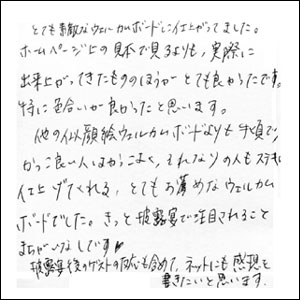 とても素敵なウェルカムボードに仕上がってました。
ホームページ上の見本で見るよりも、実際に
出来上がってきたもののほうがとても良かったです。
特に色合いが良かったと思います。
他の似顔絵ウェルカムボードよりも手頃で、
かっこ良い人はかっこよく、それなりの人も ステキに
仕上げてくれる、とてもお薦めなウェルカム
ボードでした。きっと披露宴で注目されること
まちがいなしです!
披露宴後のゲストの反応も含めて、ネットにも感想を
書きたいと思います。